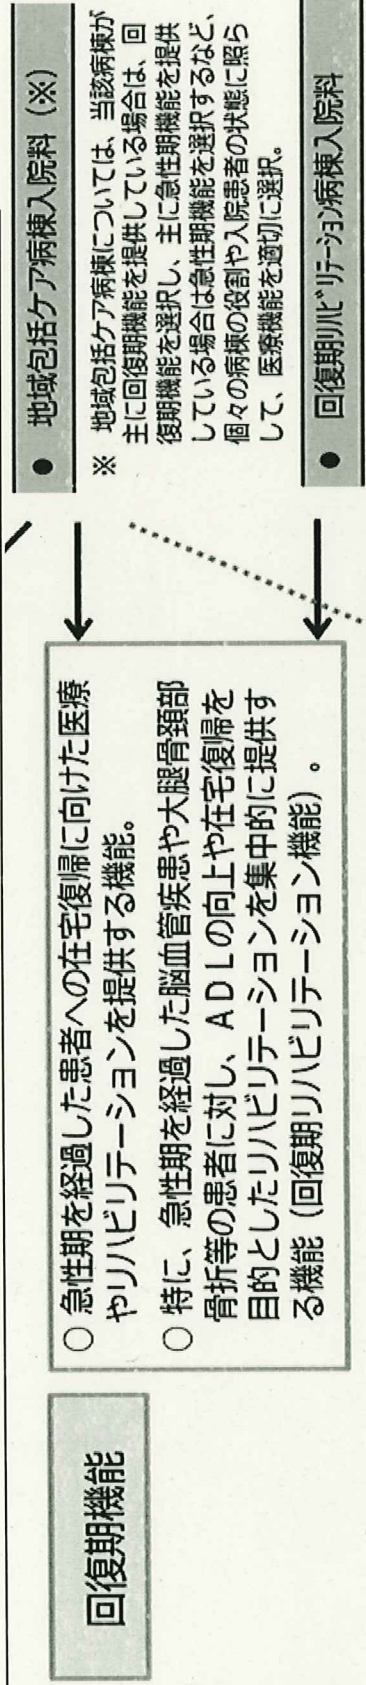 回復期機能
○ 急性期を経過した患者への在宅復帰に向けた医療
やリハビリテーションを提供する機能。
○ 特に、急性期を経過した脳血管疾患や大腿骨頚部
骨折等の患者に対し、ＡＤＬの向上や在宅復帰を
目的としたリハビリテーションを集中的に提供す
る機能（回復期リハビリテーション機能）。
● 地域包括ケア病棟入院料（※）
※ 地域包括ケア病棟については、当該病棟が
主に回復期機能を提供している場合は、回
復期機能を選択し、主に急性期機能を提供
している場合は急性期機能を選択するなど、
個々の病棟の役割や入院患者の状態に照ら
して、医療機能を適切に選択。
● 回復期ﾘﾊﾋﾞﾘﾃｰｼｮﾝ病棟入院料